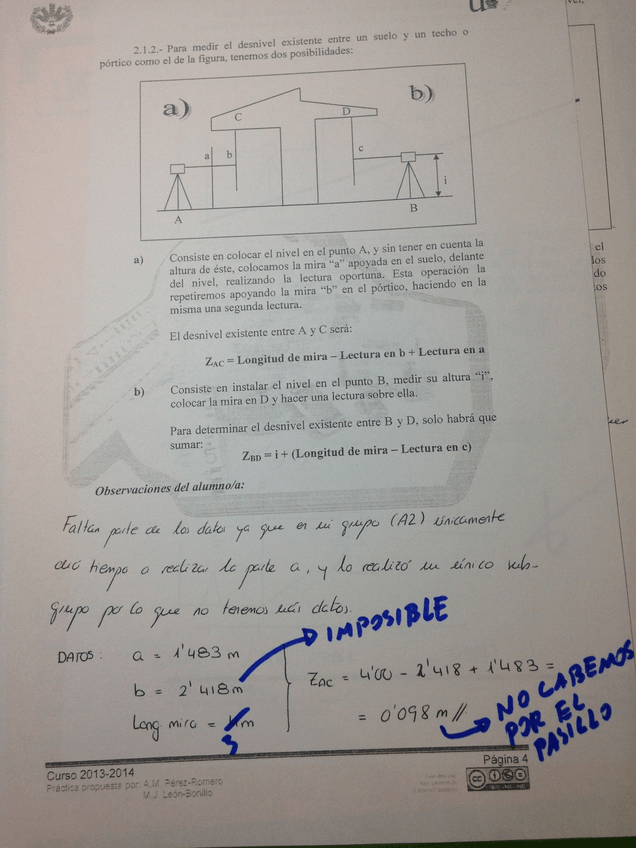 2.1.2.- Para medir el desnivel existente entre un suelo y un techo o
pórtico como el de la figura, tenemos dos posibilidades:
a)
b)
C
D
a
b
c
i
A
B
a) Consiste en colocar el nivel en el punto A, y sin tener en cuenta la
altura de éste, colocamos la mira "a" apoyada en el suelo, delante
del nivel, realizando la lectura oportuna. Esta operación la
repetiremos apoyando la mira "b" en el pórtico, haciendo en la
misma una segunda lectura.
El desnivel existente entre A y C será:
Z_AC = Longitud de mira – Lectura en b + Lectura en a
b) Consiste en instalar el nivel en el punto B, medir su altura "i",
colocar la mira en D y hacer una lectura sobre ella.
Para determinar el desnivel existente entre B y D, solo habrá que
sumar:
Z_BD = i + (Longitud de mira – Lectura en c)
Observaciones del alumno/a:
Faltan parte de los datos ya que en mi grupo (A2) únicamente
dió tiempo a realizar la parte a, y lo realizó un único sub-
grupo por lo que no tenemos más datos.
IMPOSIBLE
DATOS: a = 1'483 m
b = 2'418m
Long mira = 4m
5
Z_AC = 4'00 - 2'418 + 1'483 =
= 0'098 m //
NO CABEMOS
POR EL
PASILLO
Curso 2013-2014
Práctica propuesta por: A.M. Pérez-Romero
M.J. León-Bonillo
Página 4
cc
el
los
do
os